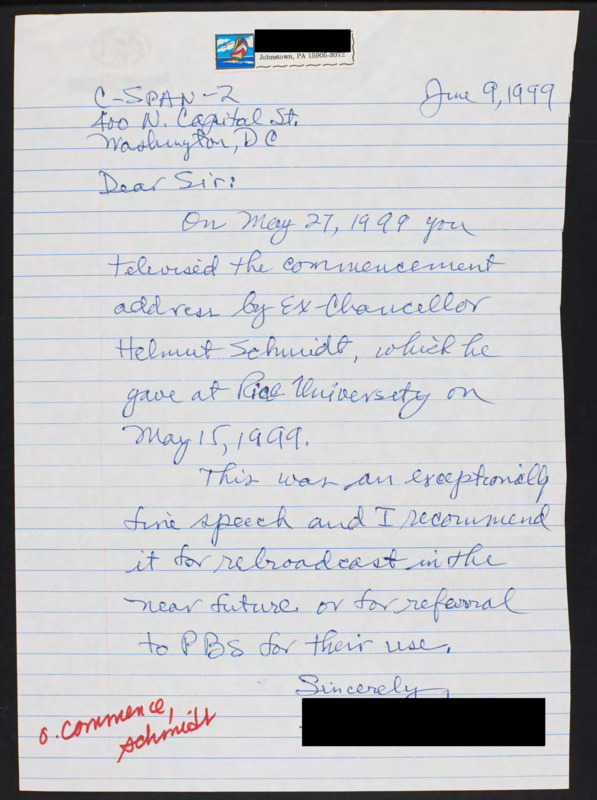 Johnstown, PA 15905-3072
June 9, 1999
C-SPAN-2
400 N. Capital St.
Washington, DC
Dear Sir:
On May 27, 1999 you
televised the commencement
address by Ex-Chancellor
Helmut Schmidt, which he
gave at Rice University on
May 15, 1999.
This was an exceptionally
fine speech and I recommend
it for rebroadcast in the
near future or for referral
to PBS for their use.
Sincerely,
o. commence,
schmidt